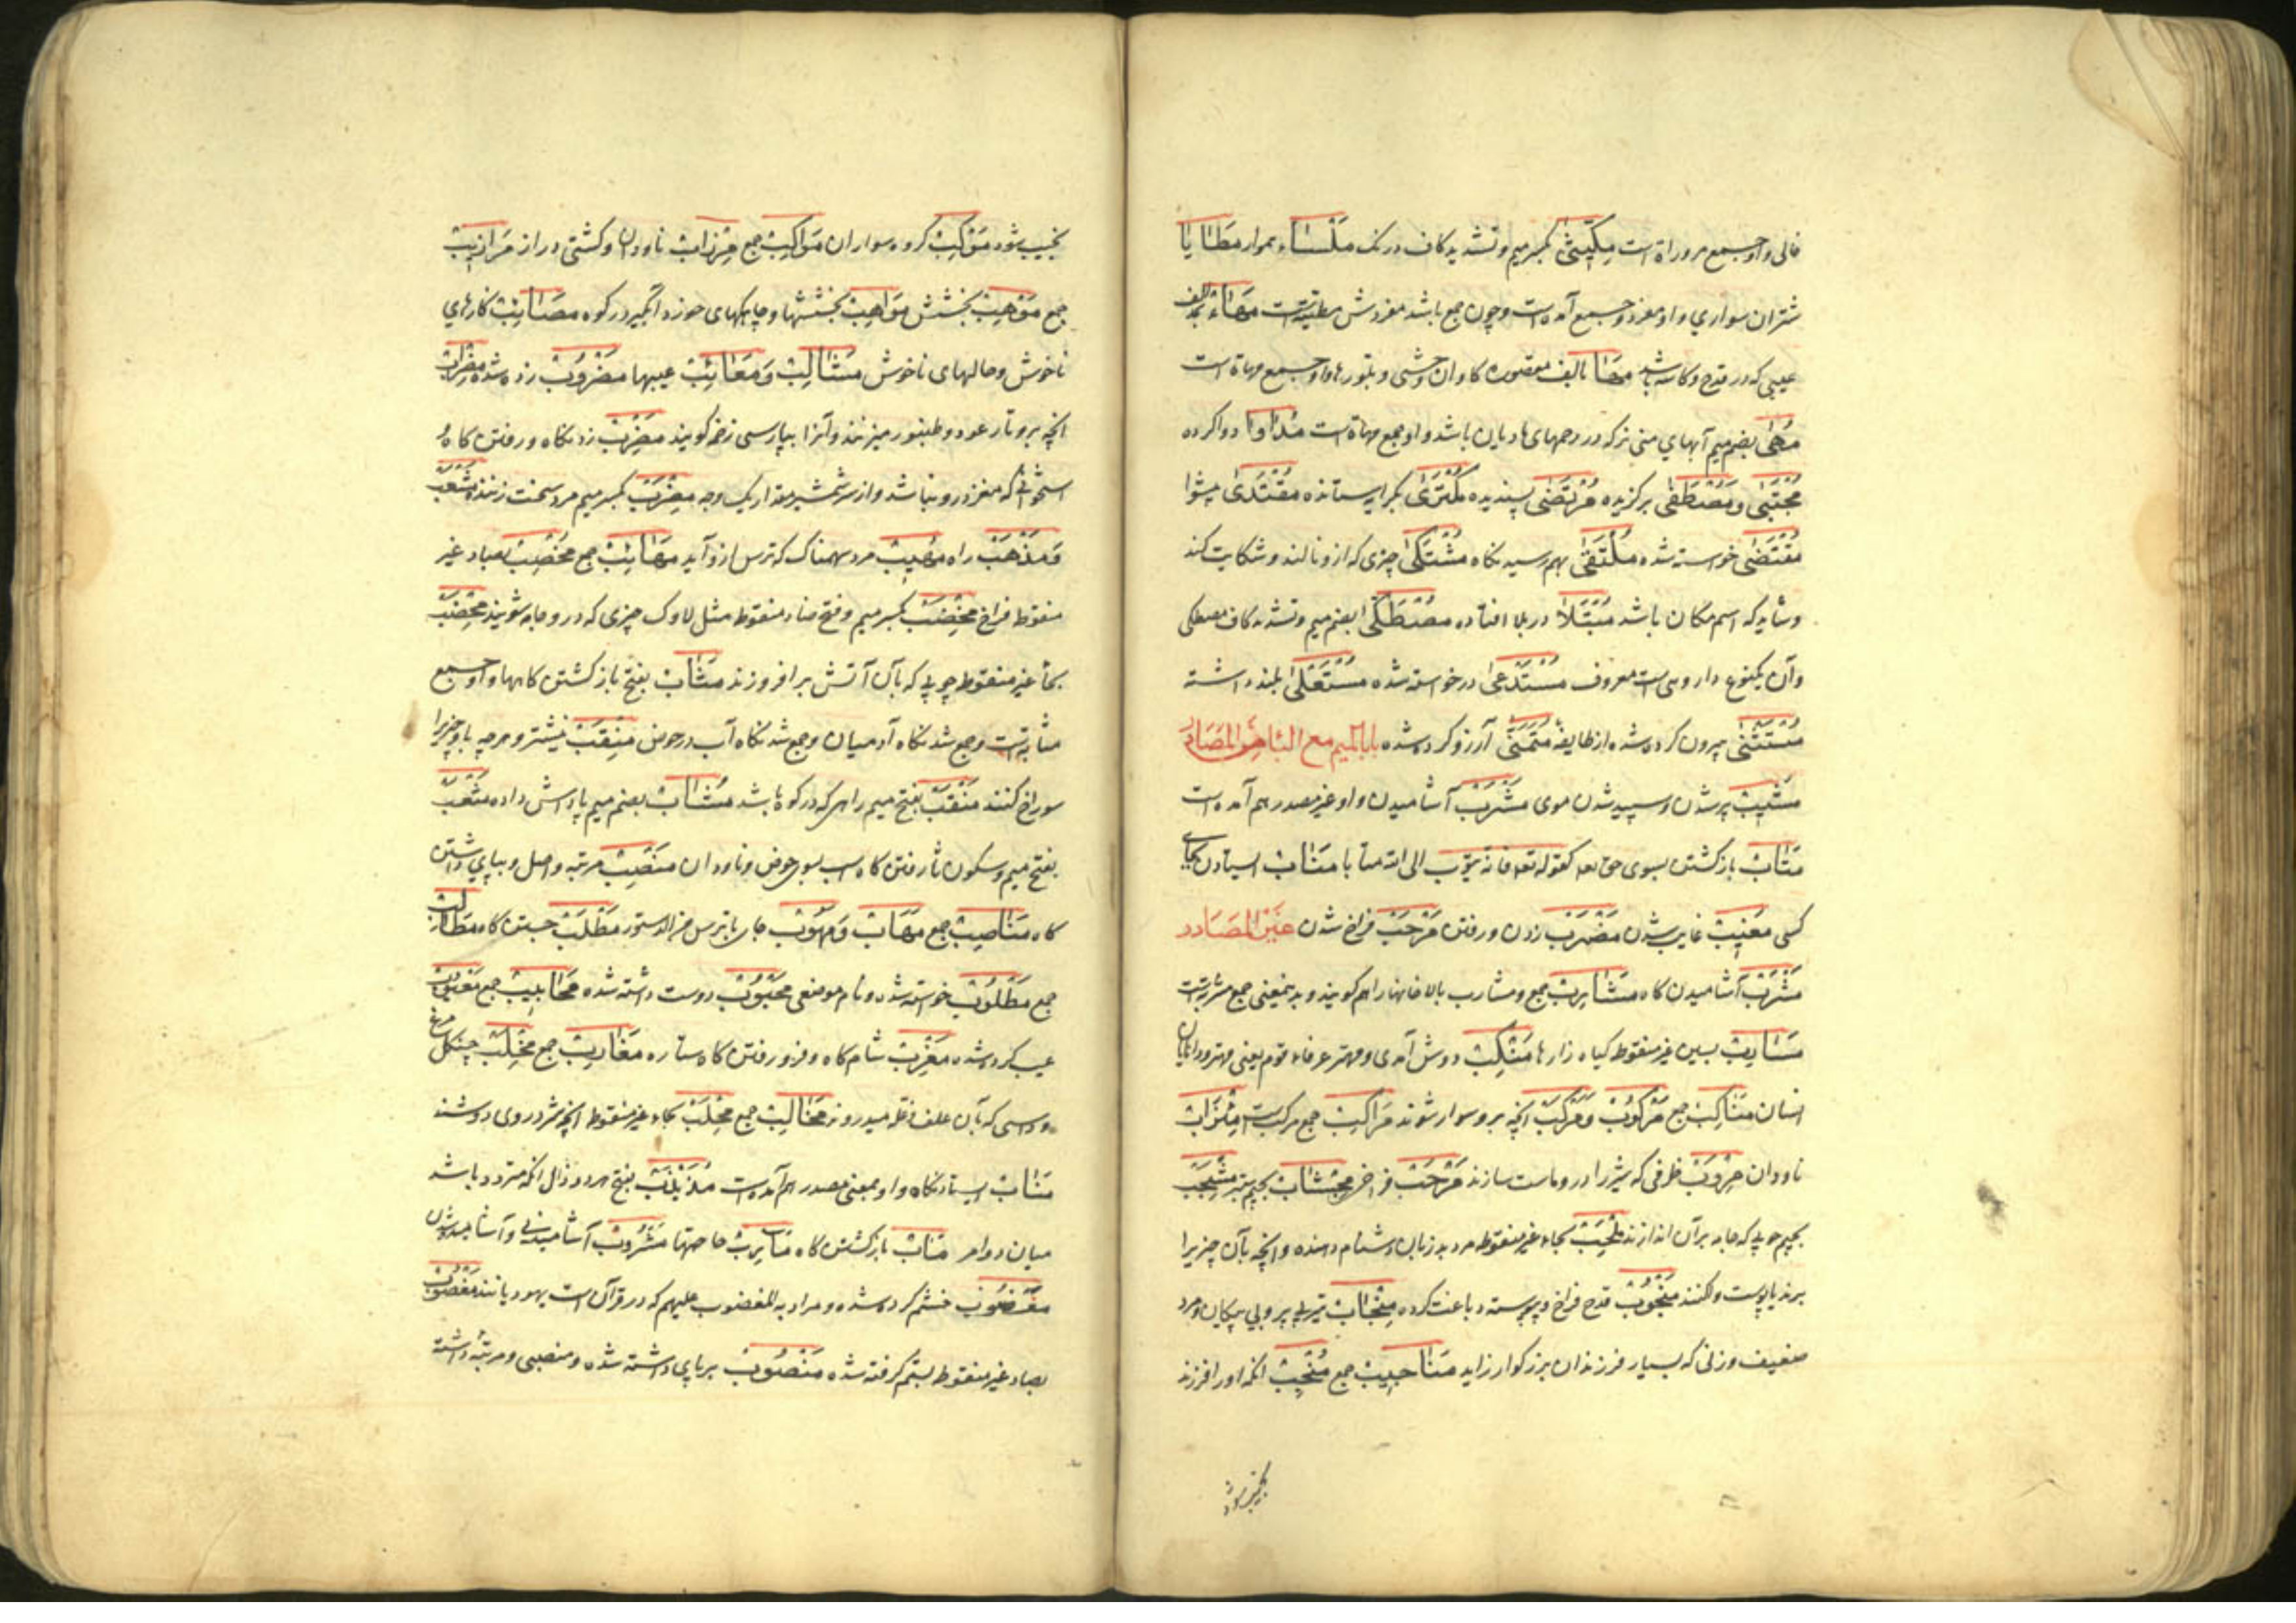 خالی و او جمع مروراة است مِکّیثیٰ بکسر میم و تشدید کاف درنک مَلْسَاء هموار مَطَایَا
شتران سواری و او مفرد و جمع آمده است و چون جمع باشد مفردش مطیّة است مَهَاء بمد الف
عیبی که در قدح و کاسه باشد مَهَا بالف مقصوره کاوان وحشی و بلورها و او جمع مهاة است
مُهیٰ بضم میم آبهای منی نر که در رحمهای مادیان باشد و او جمع مهاة است مُدَاوَا دوا کرده
مُجْتَبیٰ و مُصْطَفیٰ برکزیده مُرْتَضیٰ پسندیده مُکْتَریٰ بکرا ستانده مُقْتَدیٰ پیشوا
مُقْتَضیٰ خواسته شده مُلْتَقیٰ بهم رسیدنکاه مُشْتَکیٰ چیزی که ازو نالند و شکایت کند
و شاید که اسم مکان باشد مُبْتَلاٰ در بلا افتاده مُصْطَکّیٰ بضم میم و تشدید کاف مصطکی
و آن یکنوع داروی است معروف مُسْتَدْعیٰ درخواسته شده مُسْتَعْلیٰ بلند داشته
مُسْتَثْنیٰ بیرون کرده شده از طایفه مُتَمَنّیٰ آرزو کرده شده باب المیم مع الباء من المصادر
مَشِیبْ پیر شدن و سپید شدن موی مَشْرَبْ آشامیدن و او غیر مصدر هم آمده است
مَتَابْ بازکشتن بسوی حق تعه کقوله تعه فانه یتوب الی الله متابا مَنَابْ ایستادن بجای
کسی مَغِیبْ غایب شدن مَضْرَبْ زدن و رفتن مَرْحَبْ فراخ شدن غیر المصادر
مَشْرَبْ آشامیدن کاه مَشَارِبْ جمع و مشارب بالاخانها را هم کویند و بدینمعنی جمع مشربة است
مَسَارِبْ بسین غیر منقوطه کیاه زارها مَنْکِبْ دوش آدمی و مهتر عرفاء قوم یعنی مهتر و دانایان
ایشان مَنَاکِبْ جمع مَرْکُوبْ و مَرْکَبْ آنچه برو سوار شوند مَرَاکِبْ جمع مرکب است مِئْزَابْ
ناودان مِرْوَبْ ظرفی که شیر را درو ماست سازند مَرْحَبْ فراخی مِجْشَابْ بجیم ستبر مِشْجَبْ
بجیم چوبی که جامه بر آن اندازند مِلْحَبْ بحاء غیر منقوطه مرد بد زبان دشنام دهنده و آنچه بآن چیزی را
برند یا پوست وا کنند مَنْجُوبْ قدح فراخ و پوست دباغت کرده مِنْجَابْ تیر بی پر و بی پیکان و مرد
ضعیف و زنی که بسیار فرزندان بزرکوار زاید مَنَاجِیبْ جمع مُنْجِبْ آنکه او را فرزند
نجیب شود
نجیب شود مَوْکِبْ کروه سواران مَوَاکِبْ جمع مِرْزَابْ ناودان و کشتی دراز مَرَازِیبْ
جمع مَوْهِبْ بخشش مَوَاهِبْ بخششها و چاهکهای خورد آبکیر در کوه مَصَائِبْ کارهای
ناخوش و حالهای ناخوش مَثَالِبْ وَ مَعَائِبْ عیبها مَضْرُوبْ زده شده مِضْرَابْ
آنچه برو تار عود و طنبور میزنند و آنرا بپارسی زخمه کویند مَضْرِبْ زدنکاه و رفتن کاه و
استخوانی که مغز درو باشد و از سر شمشیر مقدار یک وجب مِضْرَبْ بکسر میم مرد سخت زننده مَشْعَبْ
وَ مَذْهَبْ راه مَهِیبْ مرد سهمناک که ترس ازو آید مَهَائِبْ جمع مُخْصِبْ بصاد غیر
منقوط فراخ مِخْضَبْ بکسر میم و فتح ضاد منقوط مثل لاوک چیزی که درو جامه شویند مِحْضَبْ
بحاء غیر منقوط چوبی که بآن آتش برافروزند مَثَابْ بفتح بازکشتن کاهها و او جمع
مثابة است و جمع شدنکاه آدمیان و جمع شدنکاه آب در حوض مِنْقَبْ نیشتر و هرچه باو چیزی را
سوراخ کنند مَنْقَبْ بفتح میم راهی که در کوه باشد مُثَابْ بضم میم پاداش داده مَثْعَبْ
بفتح میم و سکون ثا رفتن کاه آب بسوی حوض و ناودان مَنْصِبْ مرتبه و اصل و بپای داشتن
کاه مَنَاصِبْ جمع مَهَابْ وَ مَهُوبْ جای با ترس مَطْلَبْ جستن کاه مَطَالِبْ
جمع مَطْلُوبْ خواسته شده و نام موضعی مَحْبُوبْ دوست داشته شده مَحَابِیبْ جمع مَعْیُوبْ
عیب کرده شده مَغْرِبْ شام کاه و فرو رفتن کاه ستاره مَغَارِبْ جمع مِخْلَبْ چنکل مرغ
و داسی که بآن علف و غله میدروند مَخَالِبْ جمع مِحْلَبْ بحاء غیر منقوط آنچه شیر در وی دوشند
مَنَابْ ایستادنکاه و او بمعنی مصدر هم آمده است مُذَبْذَبْ بفتح هر دو ذال آنکه متردد باشد
میان دو امر مَتَابْ بازکشتن کاه مَآرِبْ حاجتها مَشْرُوبْ آشامیدنی و آشامیده شده
مَغْضُوبْ خشم کرده شده و مراد به المغضوب علیهم که در قرآن است یهود یانند مَغْصُوبْ
بصاد غیر منقوط بستم کرفته شده مَنْصُوبْ بر پای داشته شده و منصبی و مرتبه داشته